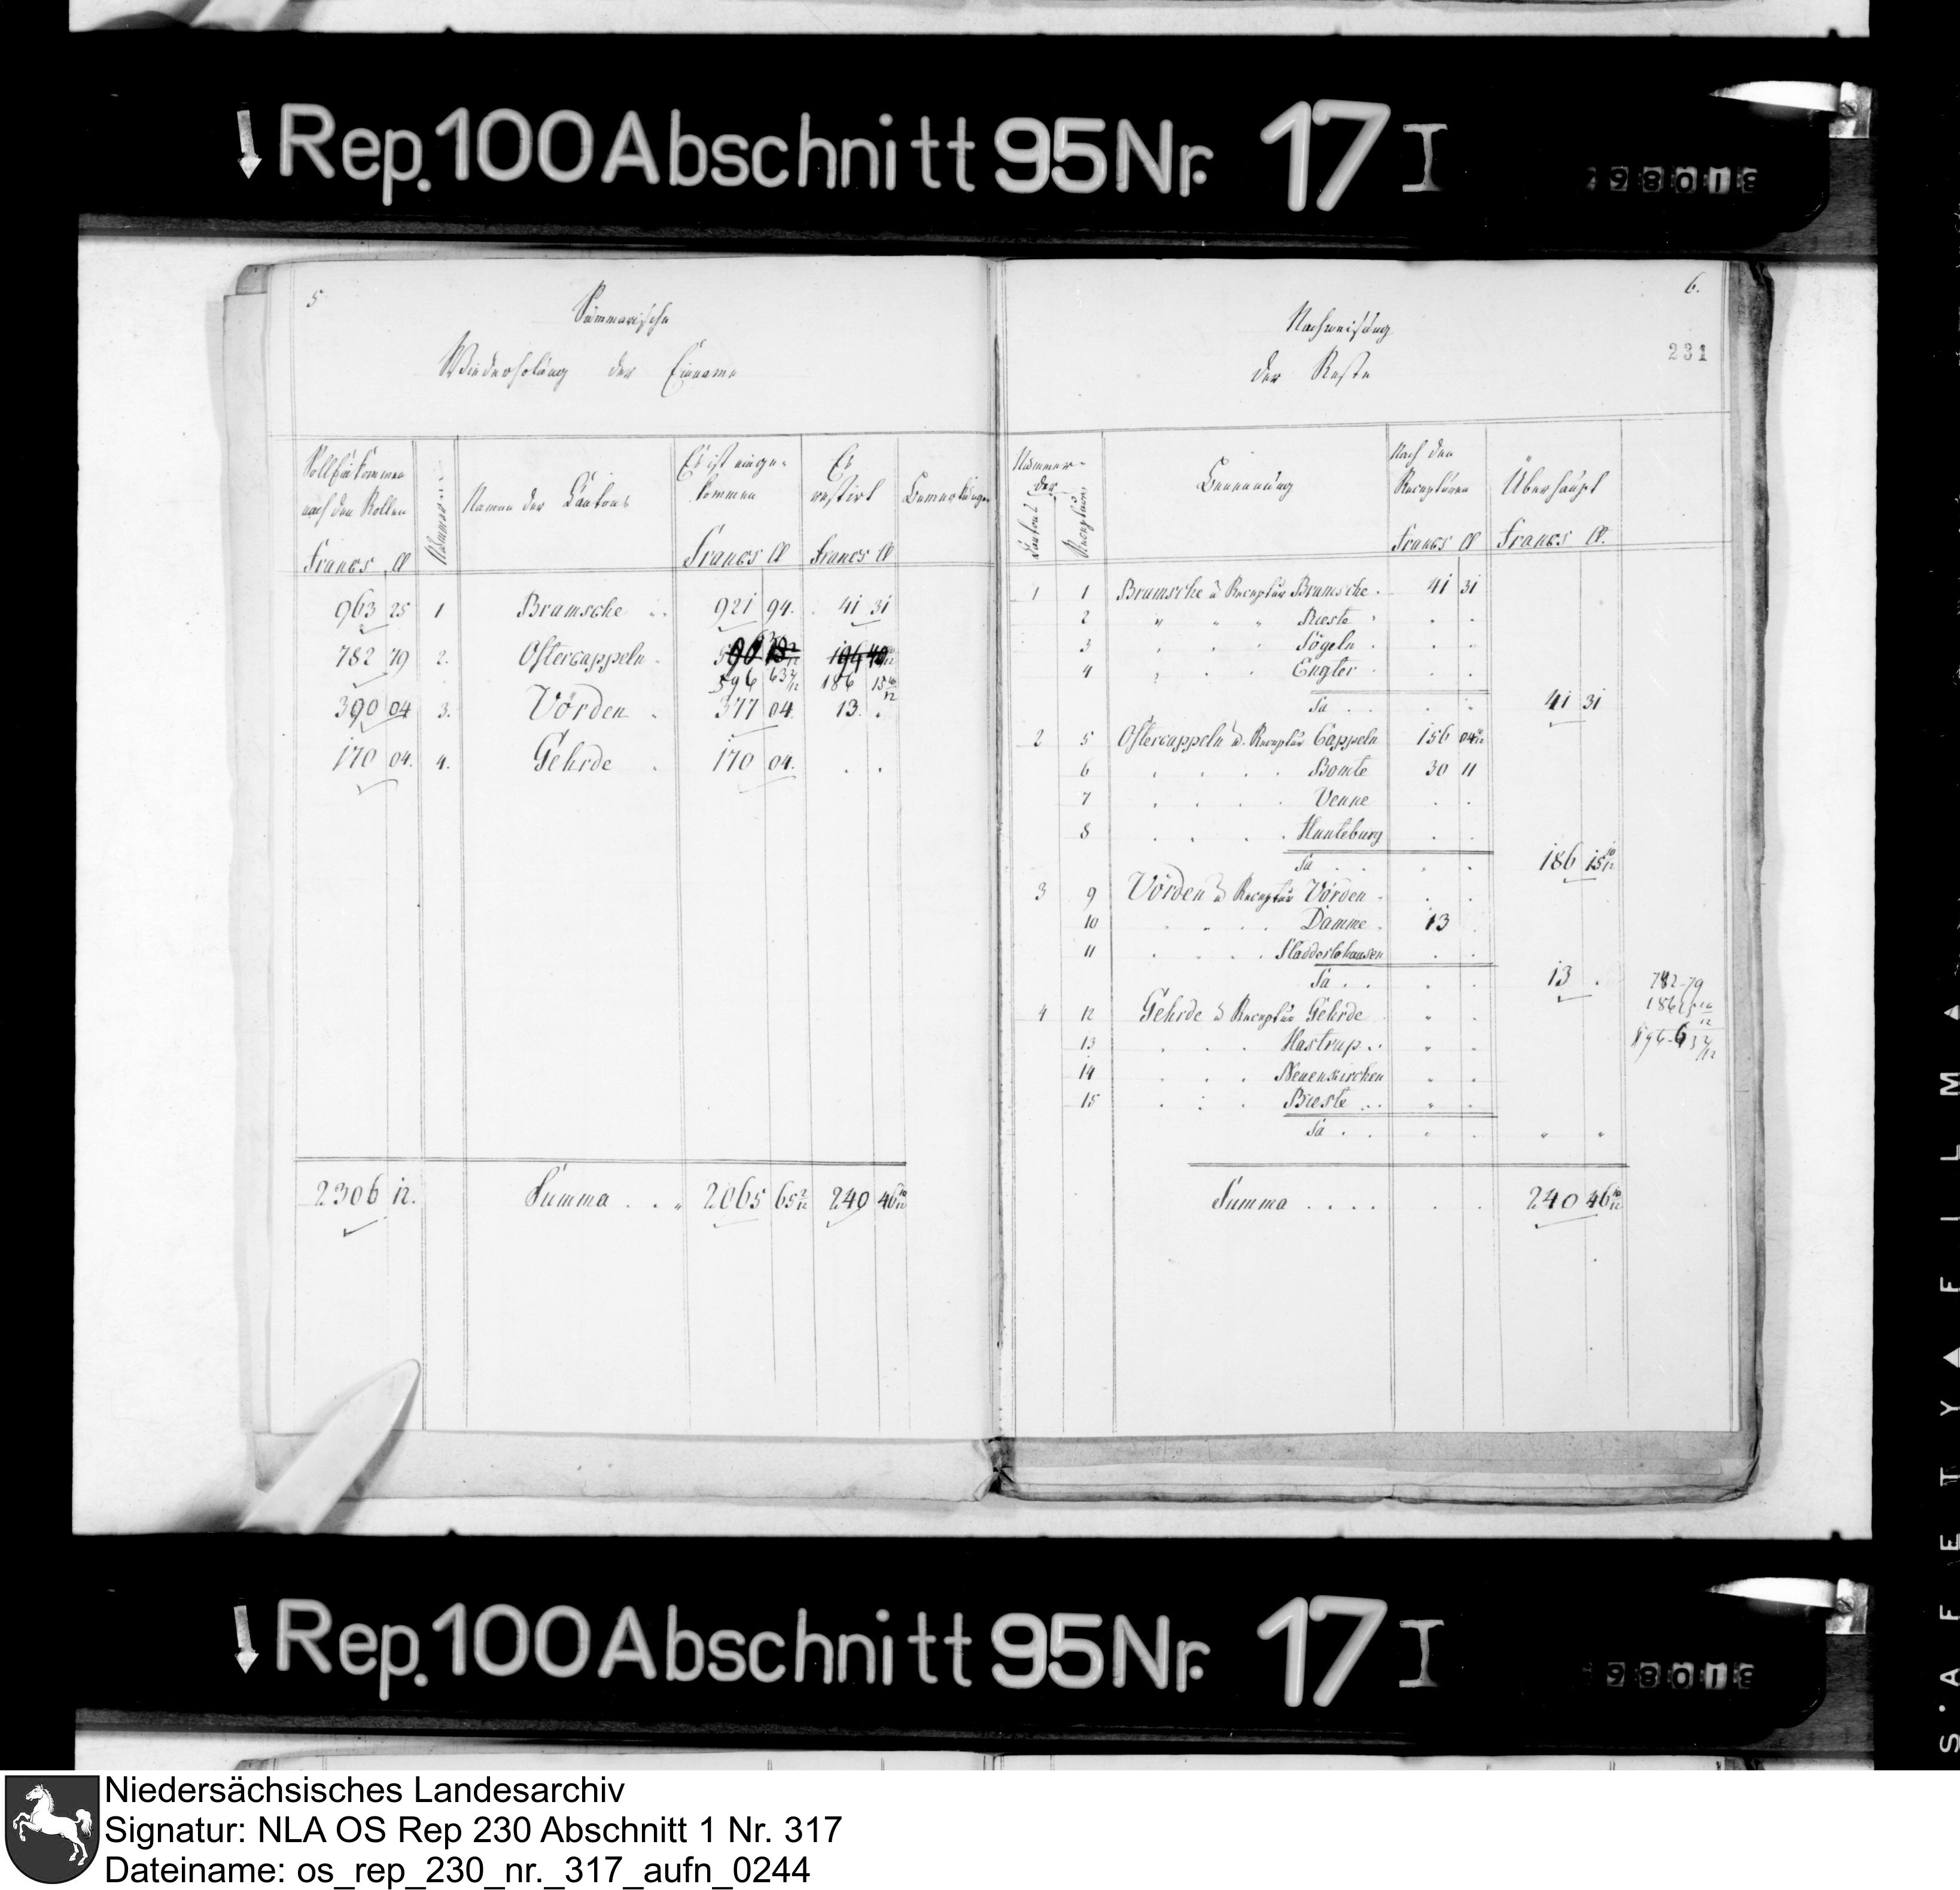 Rep. 100 Abschnitt 95 Nr. 17 I
5
Summarische
Wiederholung der Einname
nach den Rollen
Francs Ct
Namen der Cantons
Es ist einge-
kommen
Francs Ct
Es
restirt
Francs Ct
Bemerkungen
963 25 1 Bramsche 921 94. 41 31
782 79 2. Ostercappeln
596 63 2/12 186 15 10/12
390 04 3. Vörden 377 04. 13. .
170 04. 4. Gehrde 170 04. . .
2306 12. Summa . . 2065 65 2/12 240 46 10/12
6.
231
Nachweisung
der Reste
Nummer
der
Cantons
Recepturen
Benennung
Nach den
Recepturen
Francs Ct
Überhaupt
Francs Ct.
1 1 Bramsche u Receptur Bramsche . 41 31
2 " " " Rieste . .
3 Sögeln . .
4 Engter . .
Sa . . 41 31
2 5 Ostercappeln u. Receptur Cappeln 156 04 10/12
6 Bomte 30 11
7 Venne . .
8 Hunteburg . .
Sa . . 186 15 10/12
3 9 Vörden u Receptur Vörden . .
10 Damme . 13
11
Sa . . 13 .
4 12 Gehrde u Receptur Gehrde
13 Hastrup . .
14 Neuenkirchen
15 Bieste . .
Sa . .
782-79
186 15 10/12
596-63 2/12
Summa . . . . 240 46 10/12
Rep. 100 Abschnitt 95 Nr. 17 I
SAFETY▲FILM▲
Niedersächsisches Landesarchiv
Signatur: NLA OS Rep 230 Abschnitt 1 Nr. 317
Dateiname: os_rep_230_nr._317_aufn_0244